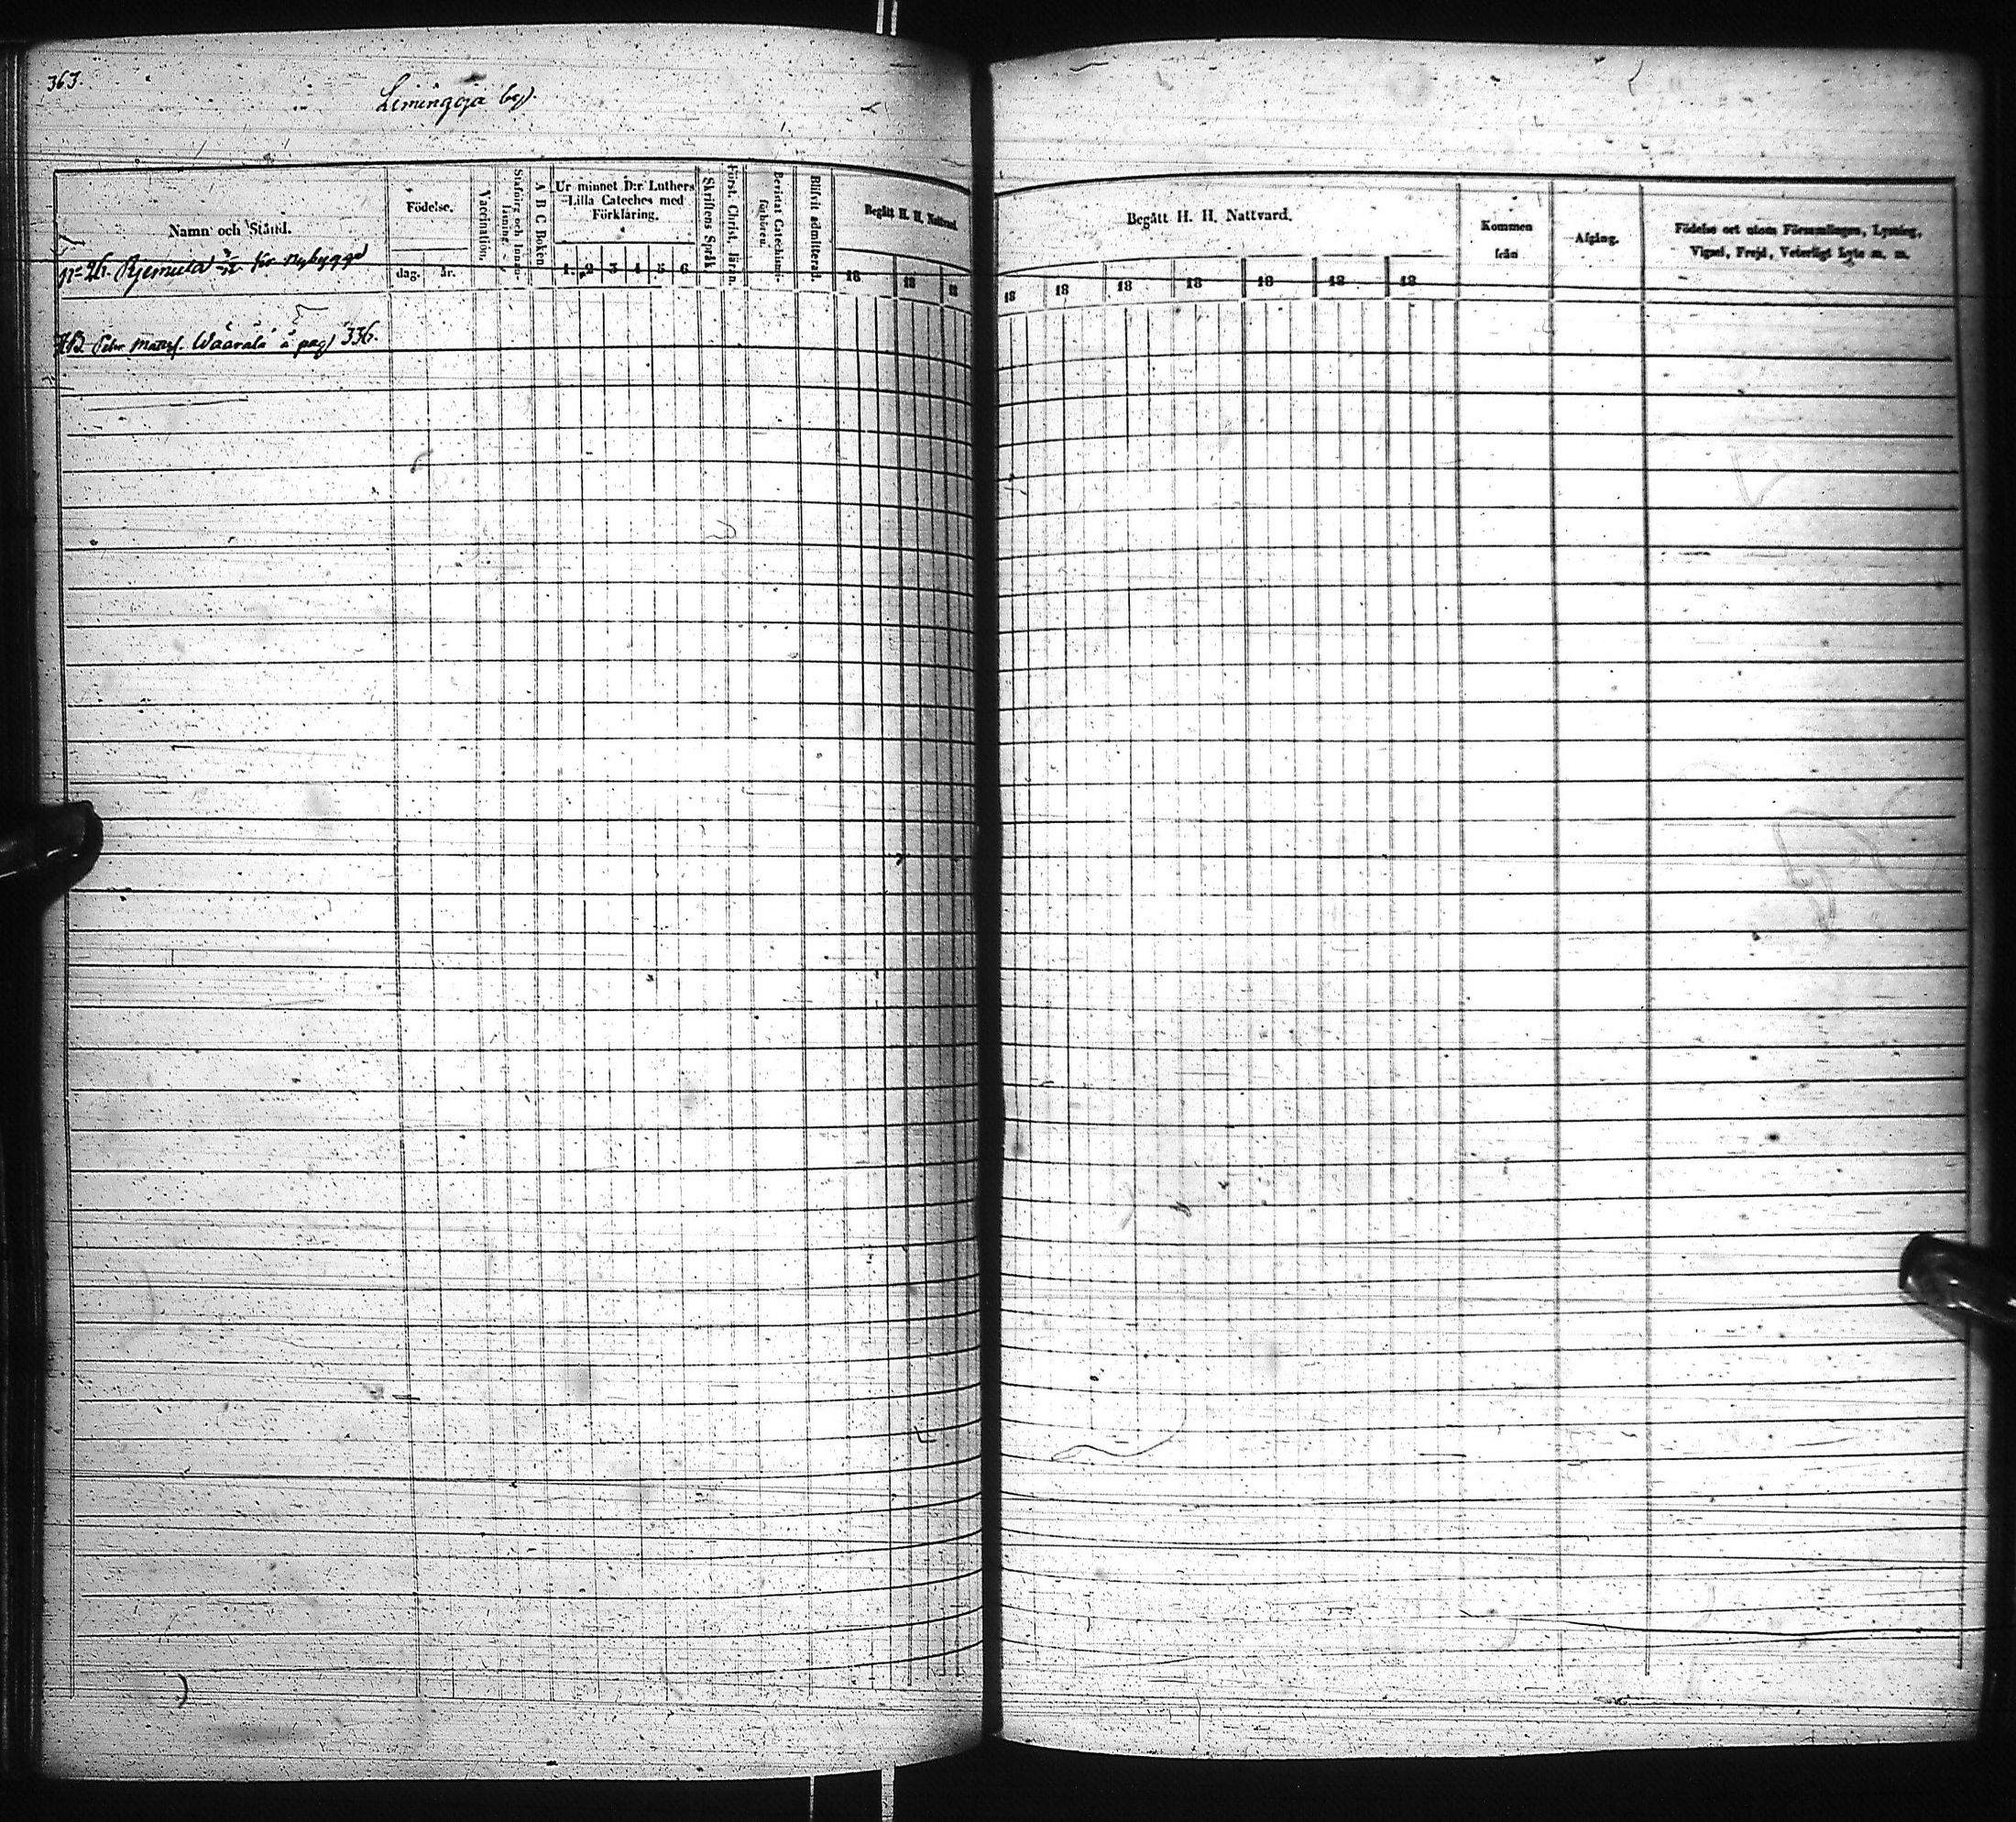 363.
Limingoja by.
Namn och Stånd.
Födelse.
dag. år.
Vaccination.
A B C Boken.
Ur minnet D:r Luthers
Lilla Cateches med
Förklaring.
1. 2 3 4 5 6
Skriftens Språk
Först. Christ. läran.
Bevistat Catechismi-
förhören.
Blifvit admitterad.
Begått H. H. Nattvard.
18 18 18
Begått H. H. Nattvard.
18 18 18 18 18 18 18
Kommen
från
Afgång.
Födelse ort utom Församlingen, Lysning,
Vigsel, Frejd, Veterligt Lyte m. m.
n:o 26. Kr nybygge
Petter Matss. Waarala å pag 336.